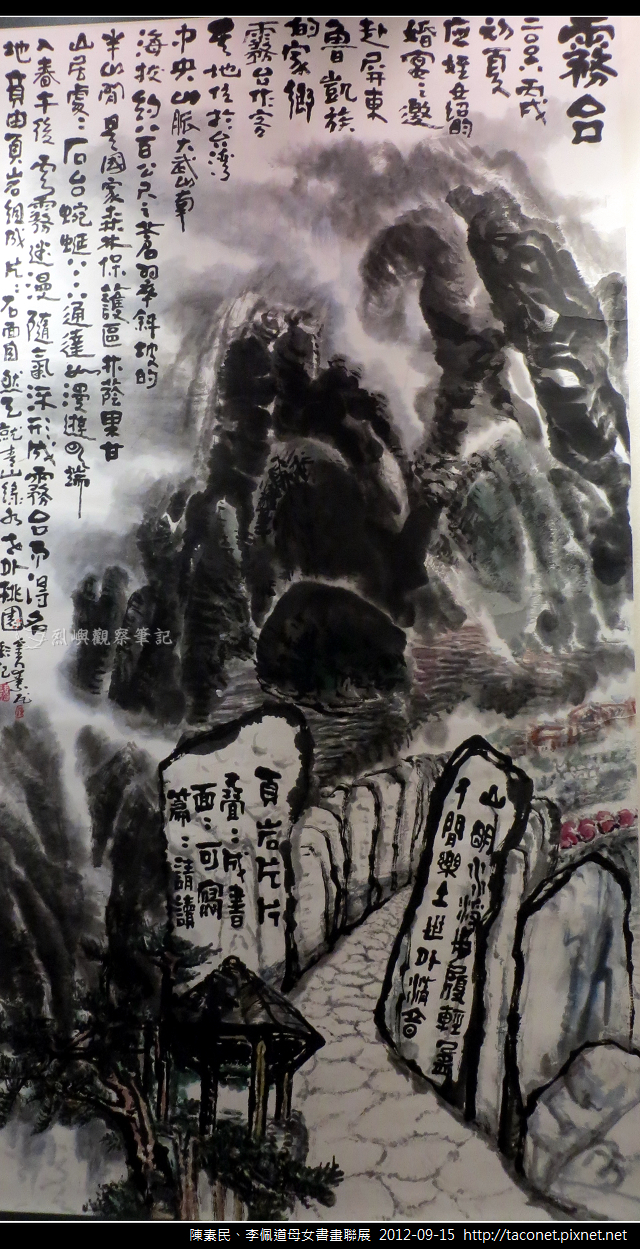 霧台
二〇〇六丙戌
初夏
應姪女紹的
婚宴之邀
赴屏東
魯凱族
的家鄉
霧台作客
其地位於台灣
中央山脈大武山南
海拔約八百公尺之蒼翠斜坡的
半山間是國家森林保護區林蔭果甘
山居處處石台蜿蜒通達如漫遊雲端
入春午後雲霧迷漫隨氣深形成霧台而得名
地質由頁岩組成片片石面自然天就青山綠水世外桃園
頁岩片片
疊疊成書
面面可寫
篇篇請讀
山明水秀步履輕盈
千間樂土世外清音
烈嶼觀察筆記
陳素民、李佩道母女書畫聯展 2012-09-15 http://taconet.pixnet.net